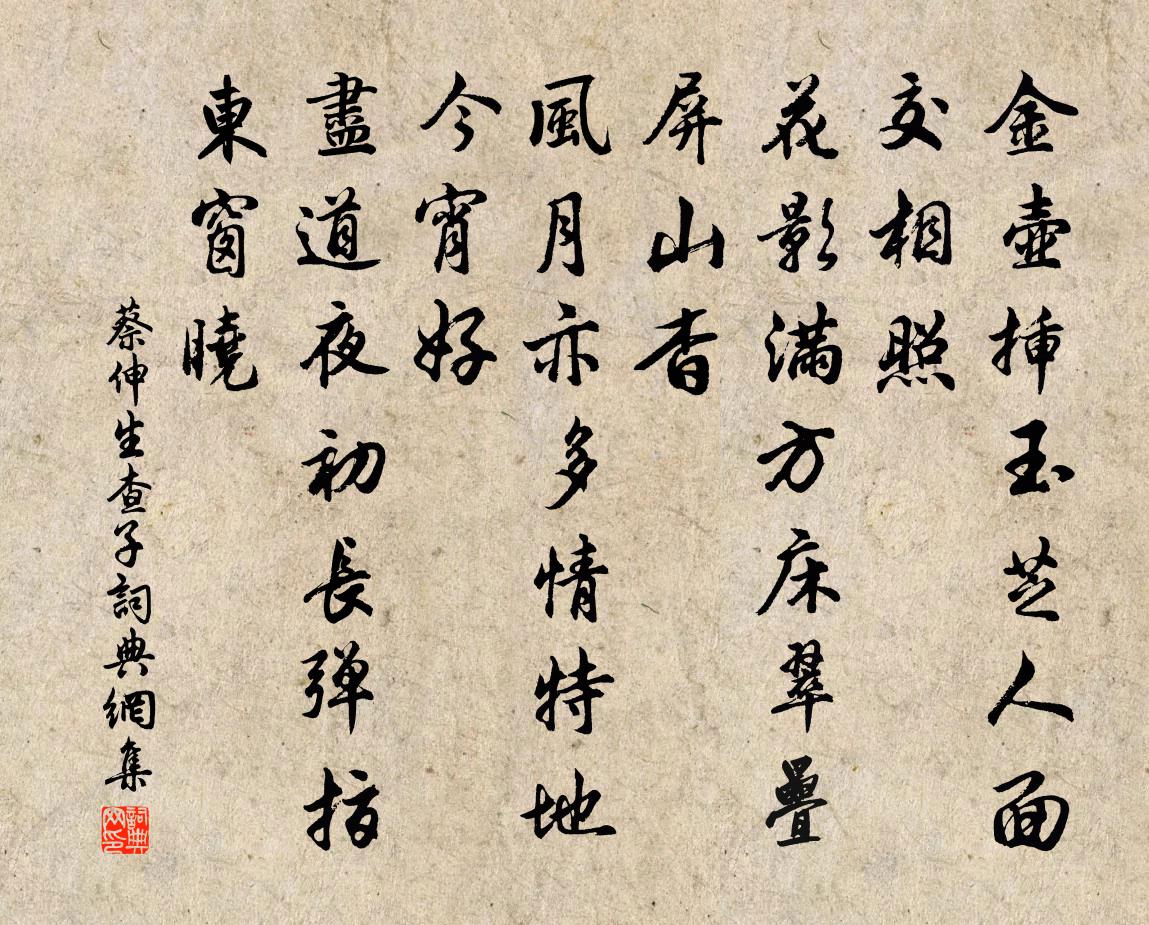 金壺插玉芝人面
交相照
花影滿方床翠疊
屏山杳
風月亦多情特地
今宵好
盡道夜初長弹指
東窗曉
蔡伸生查子詞典網集
詞典网印